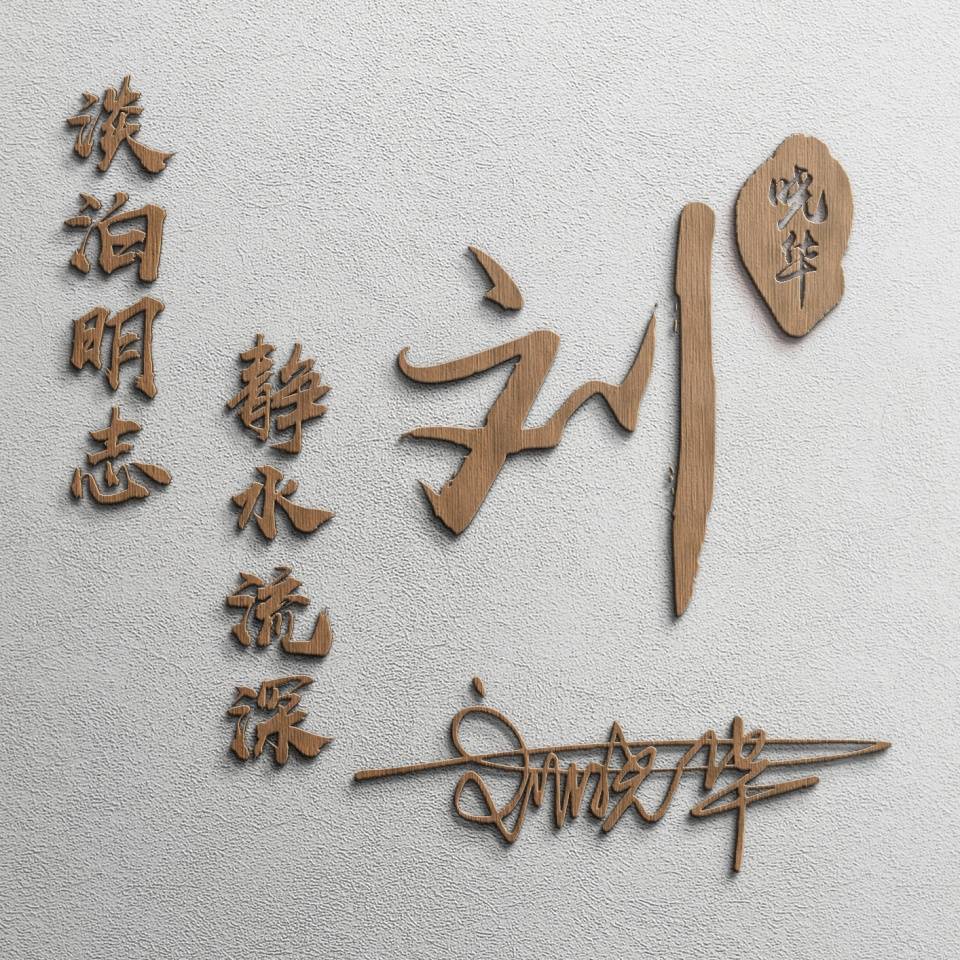 谈泊明志
静水流深
刘
晓华
刘晓华